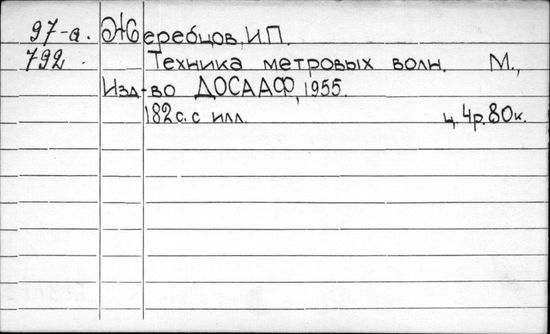 97-а. Жеребцов, И.П.
792. Техника метровых волн. М.,
Изд-во ДОСААФ, 1955.
182 с. с илл. ц. 4р. 80к.